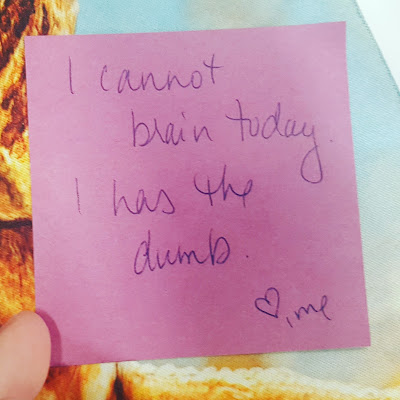 I cannot
brain today.
I has the
dumb.
♡, me